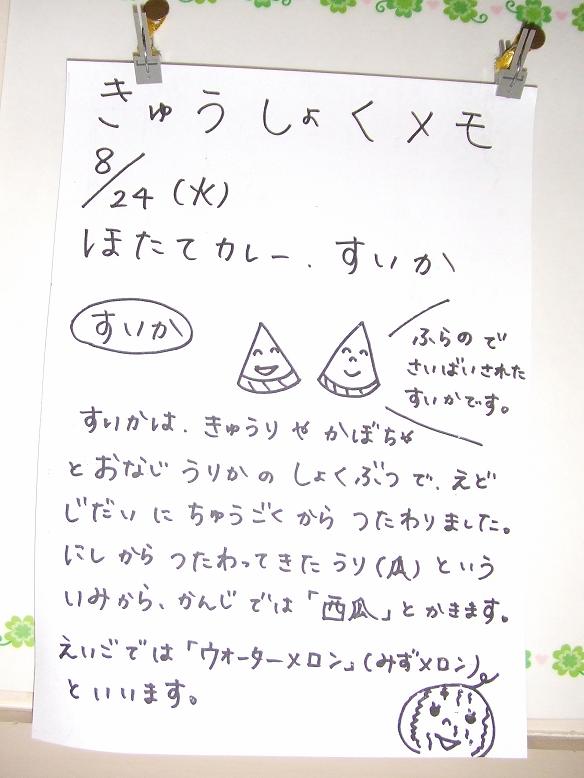 きゅうしょくメモ
8/24(火)
ほたてカレー、すいか
すいか
ふらので
さいばいされた
すいかです。
すいかは、きゅうりやかぼちゃ
とおなじうりかのしょくぶつで、えど
じだいにちゅうごくからつたわりました。
にしからつたわってきたうり(瓜)という
いみから、かんじでは「西瓜」とかきます。
えいごでは「ウォーターメロン」(みずメロン)
といいます。